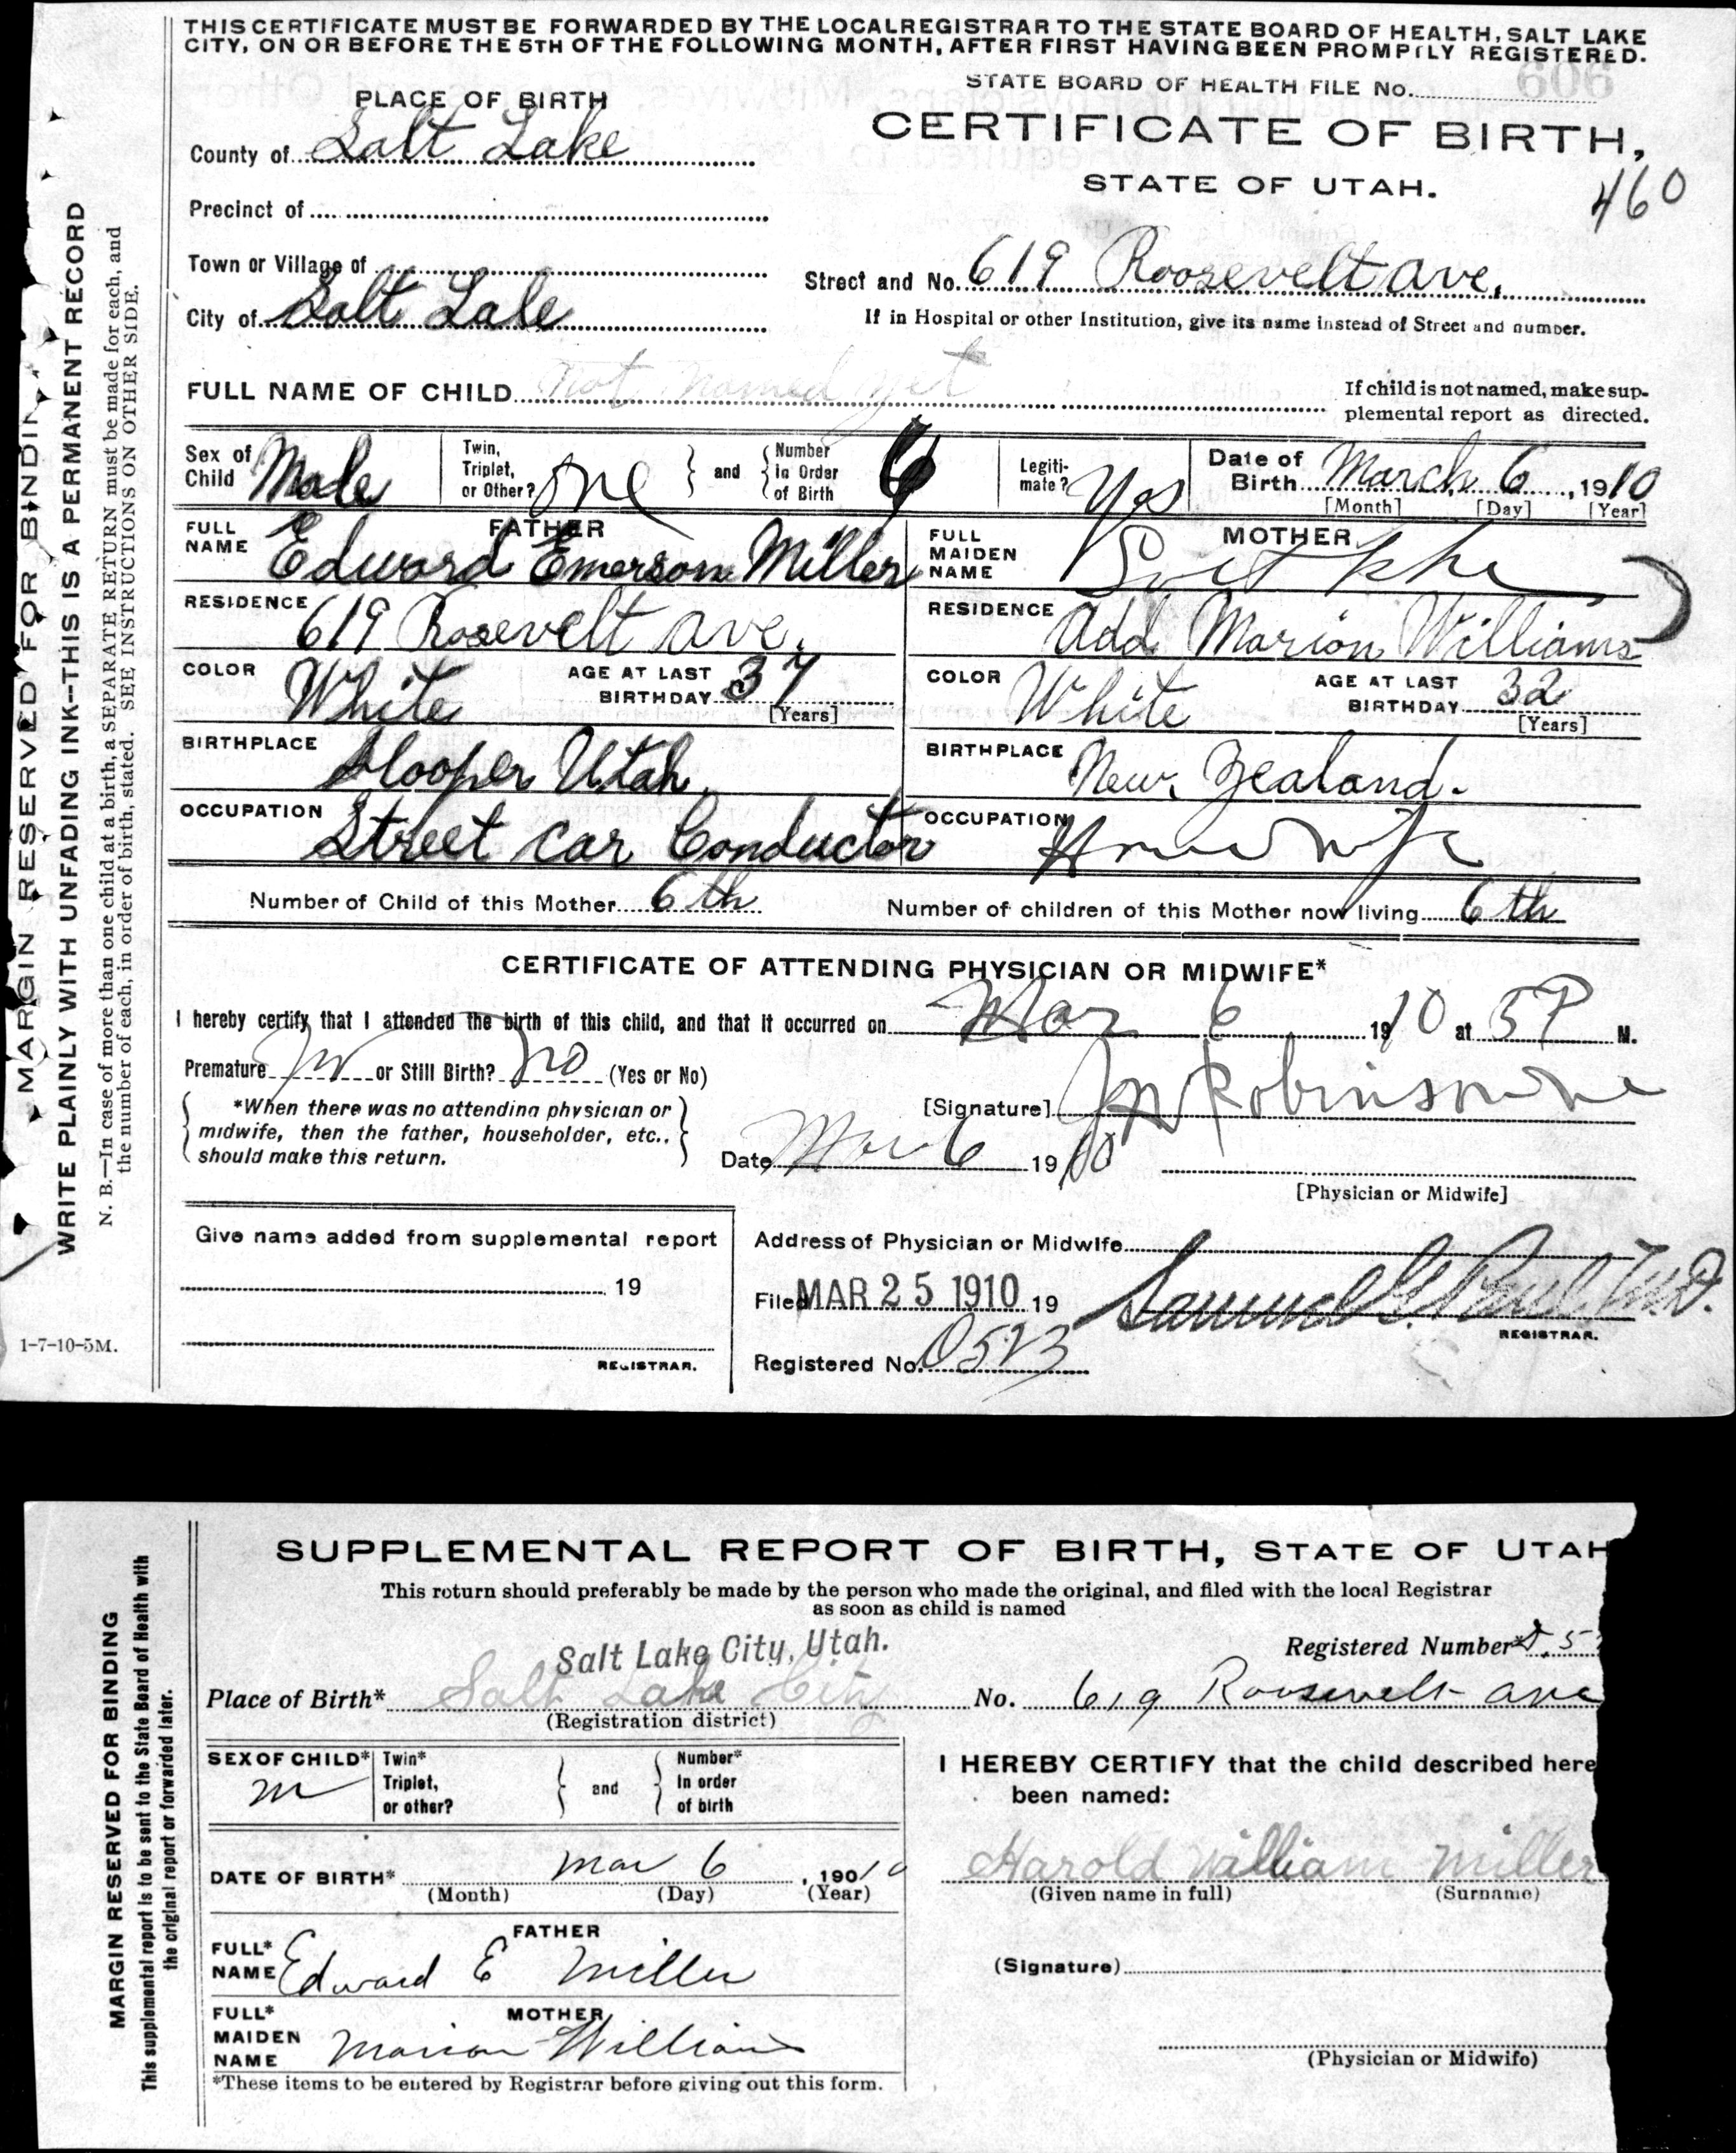 THIS CERTIFICATE MUST BE FORWARDED BY THE LOCAL REGISTRAR TO THE STATE BOARD OF HEALTH, SALT LAKE
CITY, ON OR BEFORE THE 5TH OF THE FOLLOWING MONTH, AFTER FIRST HAVING BEEN PROMPTLY REGISTERED.
606
STATE BOARD OF HEALTH FILE No.
PLACE OF BIRTH
CERTIFICATE OF BIRTH,
STATE OF UTAH.
460
County of Salt Lake
Precinct of
Town or Village of
Street and No. 619 Roosevelt ave.
City of Salt Lale
If in Hospital or other Institution, give its name instead of Street and number.
FULL NAME OF CHILD not named yet
If child is not named, make sup-
plemental report as directed.
Sex of Child Male
Twin, Triplet, or Other? one and Number in Order of Birth 6
Legiti-mate? Yes
Date of Birth March 6, 1910
[Month] [Day] [Year]
FATHER
FULL NAME Edward Emerson Miller
RESIDENCE 619 Roosevelt ave.
COLOR White AGE AT LAST BIRTHDAY 37
[Years]
BIRTHPLACE Hooper Utah.
OCCUPATION Street Car Conductor
MOTHER
FULL MAIDEN NAME
RESIDENCE add Marion Williams
COLOR White AGE AT LAST BIRTHDAY 32
[Years]
BIRTHPLACE New Zealand.
OCCUPATION Housewife
Number of Child of this Mother 6th
Number of children of this Mother now living 6th
CERTIFICATE OF ATTENDING PHYSICIAN OR MIDWIFE*
I hereby certify that I attended the birth of this child, and that it occurred on Mar 6 1910 at 5 P M.
Premature no or Still Birth? no (Yes or No)
*When there was no attending physician or
midwife, then the father, householder, etc.,
should make this return.
[Signature] Robinson
Date Mar 6 1910
[Physician or Midwife]
Give name added from supplemental report
19
REGISTRAR.
Address of Physician or Midwife
Filed MAR 25 1910 19 Samuel G. Paul, M.D.
REGISTRAR.
Registered No. 0523
1-7-10-5M.
MARGIN RESERVED FOR BINDING
WRITE PLAINLY WITH UNFADING INK--THIS IS A PERMANENT RECORD
N. B.—In case of more than one child at a birth, a SEPARATE RETURN must be made for each, and
the number of each, in order of birth, stated. SEE INSTRUCTIONS ON OTHER SIDE.
SUPPLEMENTAL REPORT OF BIRTH, STATE OF UTAH
This return should preferably be made by the person who made the original, and filed with the local Registrar
as soon as child is named
Salt Lake City, Utah.
Registered Number*
Place of Birth* Salt Lake City No. 619 Roosevelt ave
(Registration district)
SEX OF CHILD* m
Twin* Triplet, or other? and Number* In order of birth
DATE OF BIRTH* Mar 6, 19010
(Month) (Day) (Year)
FATHER
FULL* NAME Edward E Miller
MOTHER
FULL* MAIDEN NAME Marion Williams
*These items to be entered by Registrar before giving out this form.
I HEREBY CERTIFY that the child described here
been named:
Harold William Miller
(Given name in full) (Surname)
(Signature)
(Physician or Midwife)
MARGIN RESERVED FOR BINDING
This supplemental report is to be sent to the State Board of Health with
the original report or forwarded later.